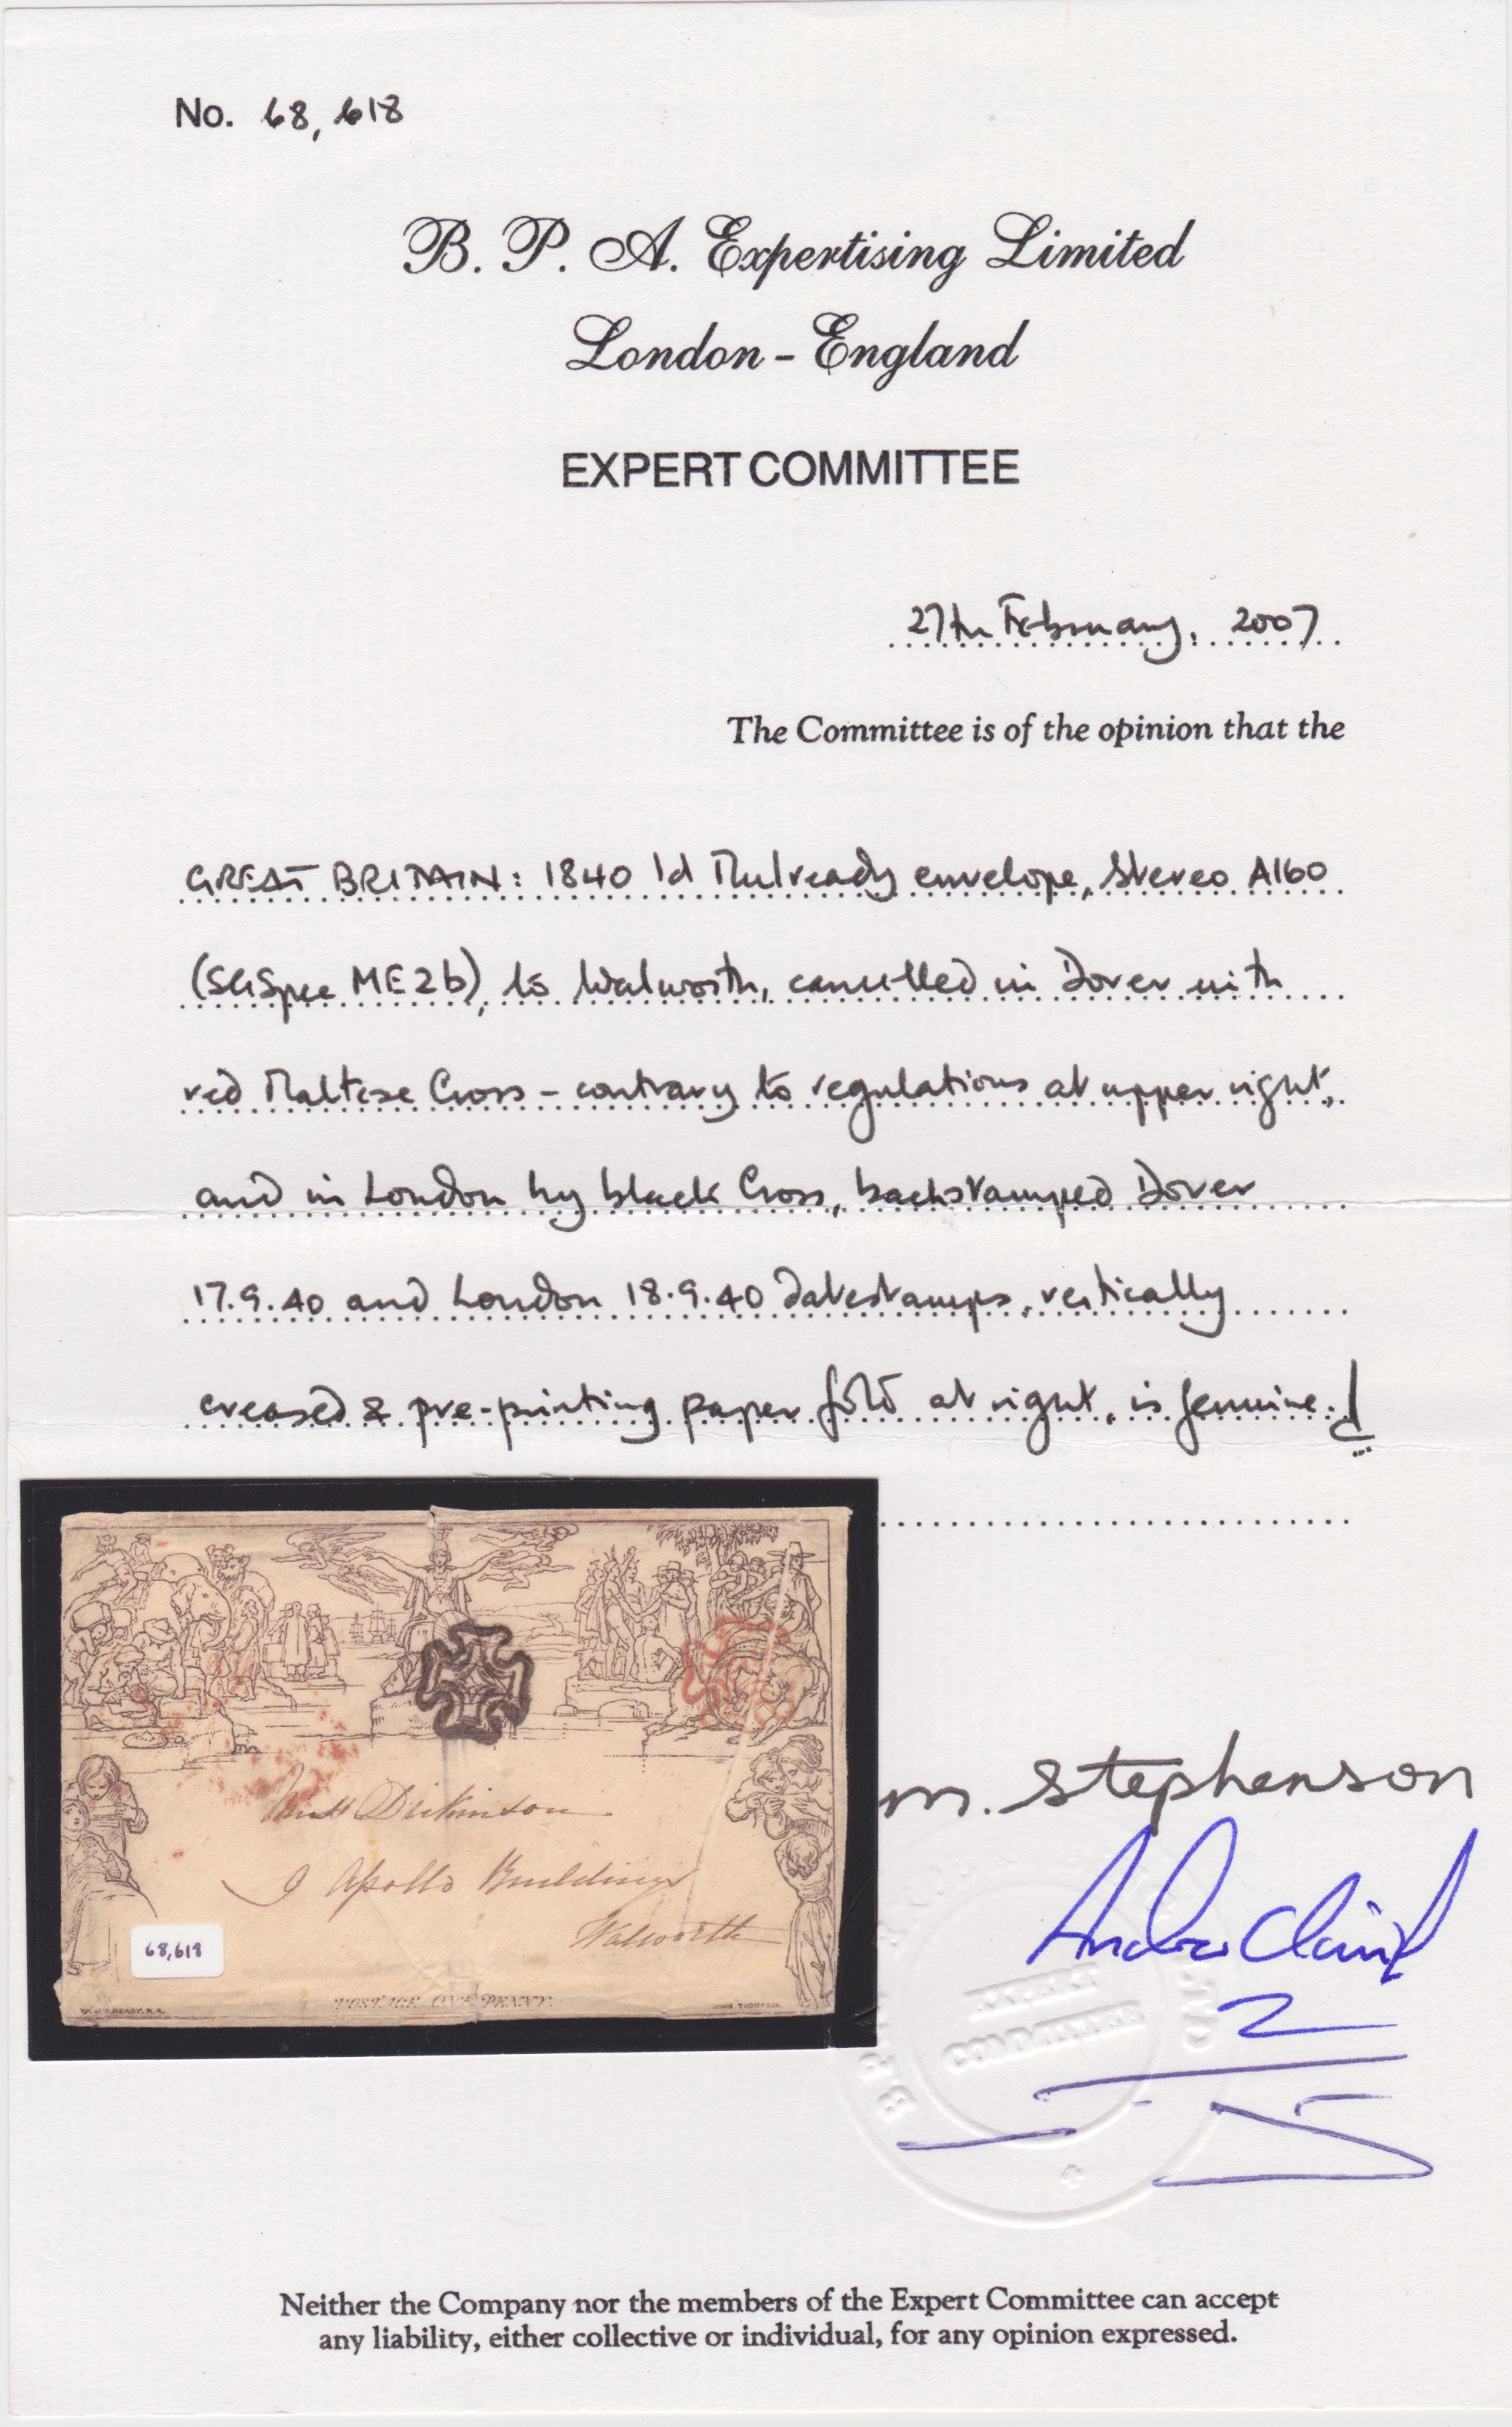 No. 68,618
B. P. A. Expertising Limited
London - England
EXPERT COMMITTEE
27th February, 2007
The Committee is of the opinion that the
GREAT BRITAIN: 1840 1d Mulready envelope, Stereo A160
(SG Spec ME2b), to Walworth, cancelled in Dover with
red Maltese Cross - contrary to regulations at upper right,
and in London by black Cross, backstamped Dover
17.9.40 and London 18.9.40 datestamps, vertically
creased & pre-printing paper fold at right, is genuine.
Dickinson
9 Apollo Buildings
Walworth
68,618
POSTAGE ONE PENNY.
JOHN THOMPSON
M. Stephenson
B P A
LTD
EXPERT
COMMITTEE
Neither the Company nor the members of the Expert Committee can accept
any liability, either collective or individual, for any opinion expressed.